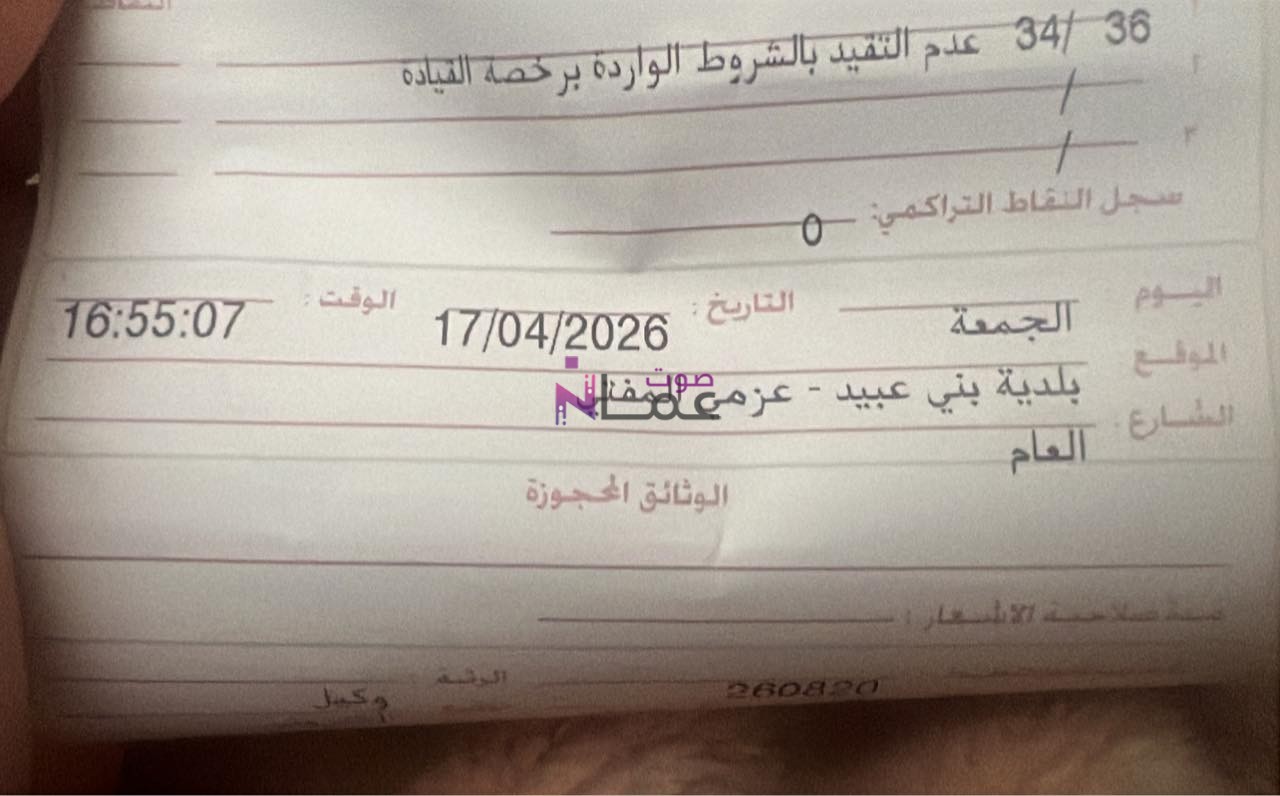 النقاط
36 /34 عدم التقيد بالشروط الواردة برخصة القيادة
٢ /
٣ /
سجل النقاط التراكمي: 0
اليوم الجمعة التاريخ: 17/04/2026 الوقت: 16:55:07
الموقع بلدية بني عبيد - عزمي المفتي
صوت عمان
الشارع: العام
الوثائق المحجوزة
مدة صلاحية الاشعار:
260820 الرتبة وكيل